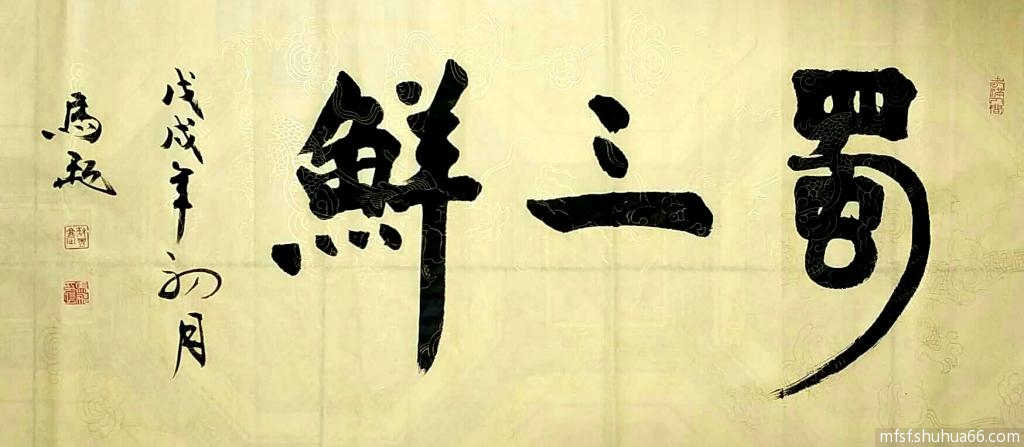 蜀三鮮
戊戌年初月
馬
mfsf.shuhua66.com